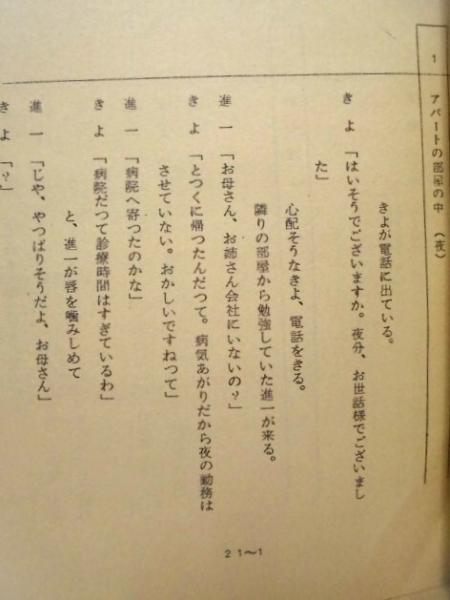 1 アパートの部屋の中 (夜)
きよが電話に出ている。
きよ「はいそうでございますか。夜分、お世話様でございまし
た」
心配そうなきよ、電話をきる。
隣りの部屋から勉強していた進一が来る。
進一「お母さん、お姉さん会社にいないの?」
きよ「とつくに帰つたんだつて。病気あがりだから夜の勤務は
させていない。おかしいですねつて」
進一「病院へ寄つたのかな」
きよ「病院だつて診療時間はすぎているわ」
と、進一が唇を噛みしめて
進一「じや、やつぱりそうだよ、お母さん」
きよ「?」
21〜1